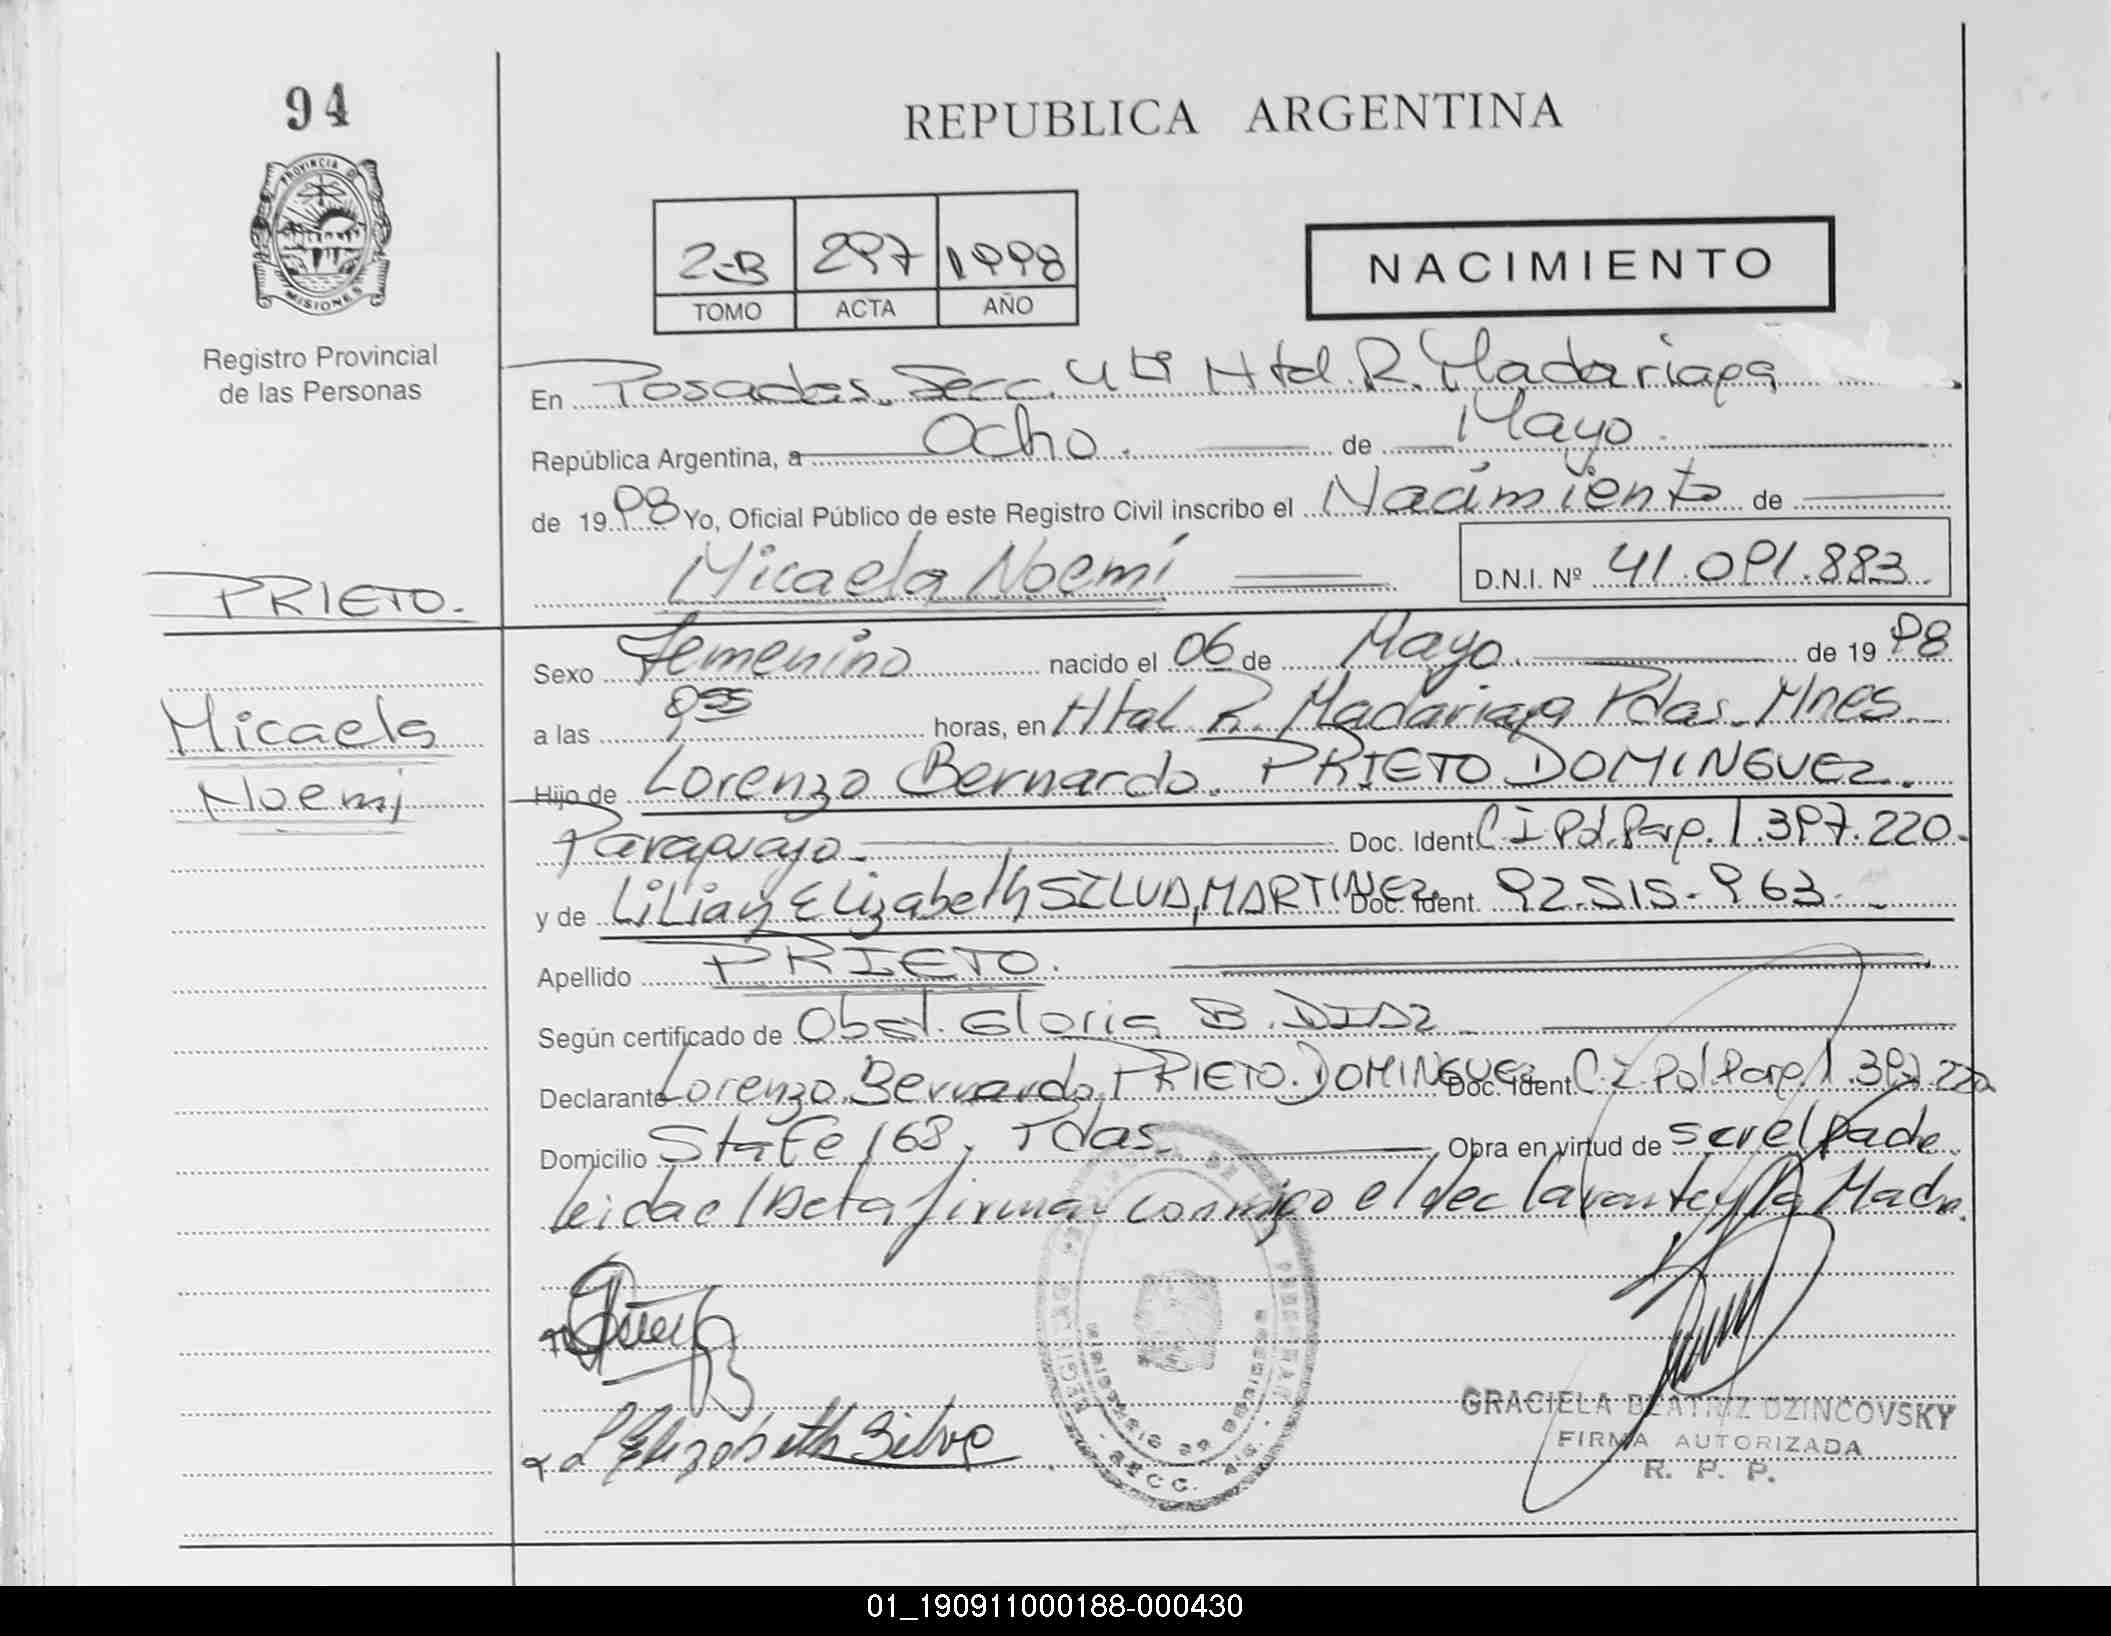 94
REPUBLICA ARGENTINA
PROVINCIA DE
MISIONES
Registro Provincial
de las Personas
2-B 297 1998
TOMO ACTA AÑO
NACIMIENTO
En Posadas. Secc. 4ta Htal. R. Madariaga
República Argentina, a Ocho. de Mayo.
de 1998 Yo, Oficial Público de este Registro Civil inscribo el Nacimiento de
Micaela Noemí
D.N.I. Nº 41.091.883.
PRIETO.
Micaela
Noemi
Sexo Femenino nacido el 06 de Mayo. de 1998
a las 9 55 horas, en Htal R. Madariaga Pdas. Mnes
Hijo de Lorenzo Bernardo. PRIETO DOMINGUEZ.
Paraguayo. Doc. Ident C I Pol. Parg. 1.397.220.
y de Lilian Elizabeth SILVA, MARTINEZ. Doc. Ident. 92.515.963.
Apellido PRIETO.
Según certificado de Obst. Gloria B. DIAZ
Declarante Lorenzo Bernardo, PRIETO. DOMINGUEZ Doc. Ident. C.I. Pol Parg. 1.397.220
Domicilio Sta Fe 168, Pdas. Obra en virtud de ser el Padre
leida el Acta firman conmigo el declarante y la Madre.
L Elizabeth Silva
GRACIELA BEATRIZ DZINCOVSKY
FIRMA AUTORIZADA
R. P. P.
01_190911000188-000430